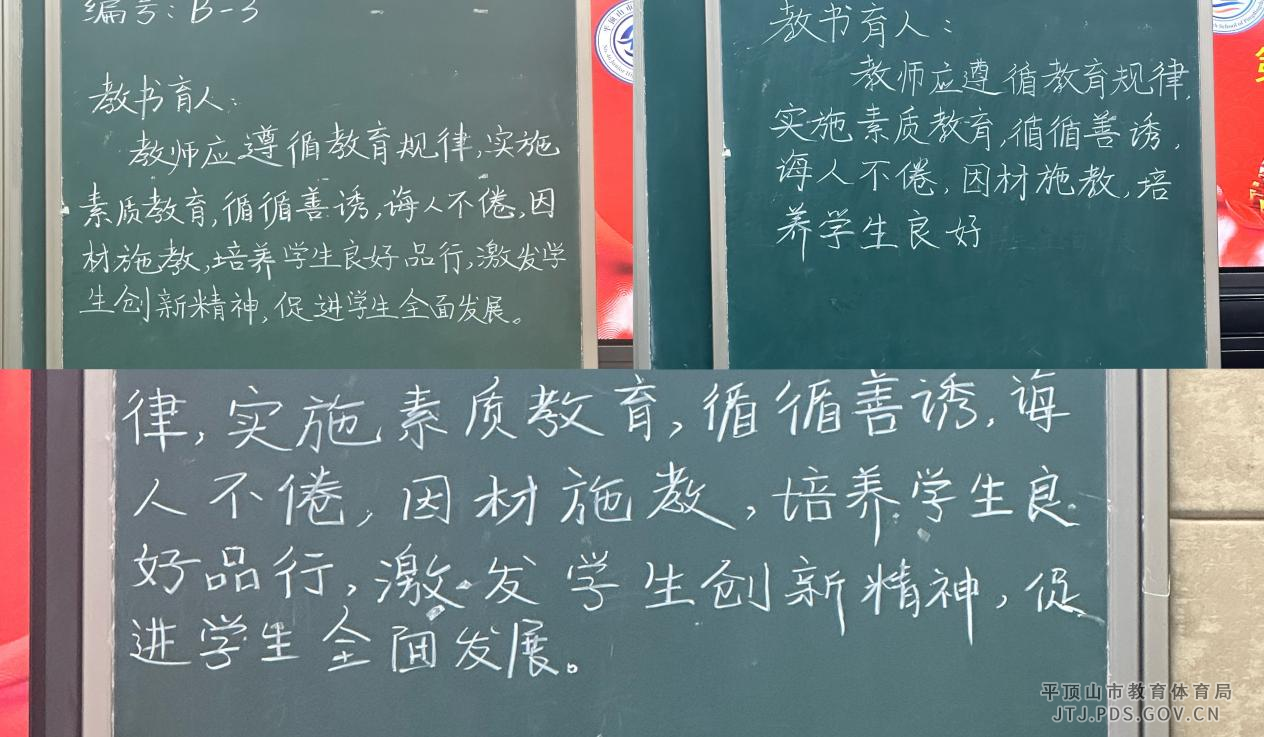 编号：B-3
教书育人：
教师应遵循教育规律,实施
素质教育,循循善诱,诲人不倦,因
材施教,培养学生良好品行,激发学
生创新精神,促进学生全面发展。
教书育人：
教师应遵循教育规律,
实施素质教育,循循善诱,
诲人不倦,因材施教,培
养学生良好
律,实施素质教育,循循善诱,诲
人不倦,因材施教,培养学生良
好品行,激发学生创新精神,促
进学生全面发展。
平顶山市教育体育局
JTJ.PDS.GOV.CN